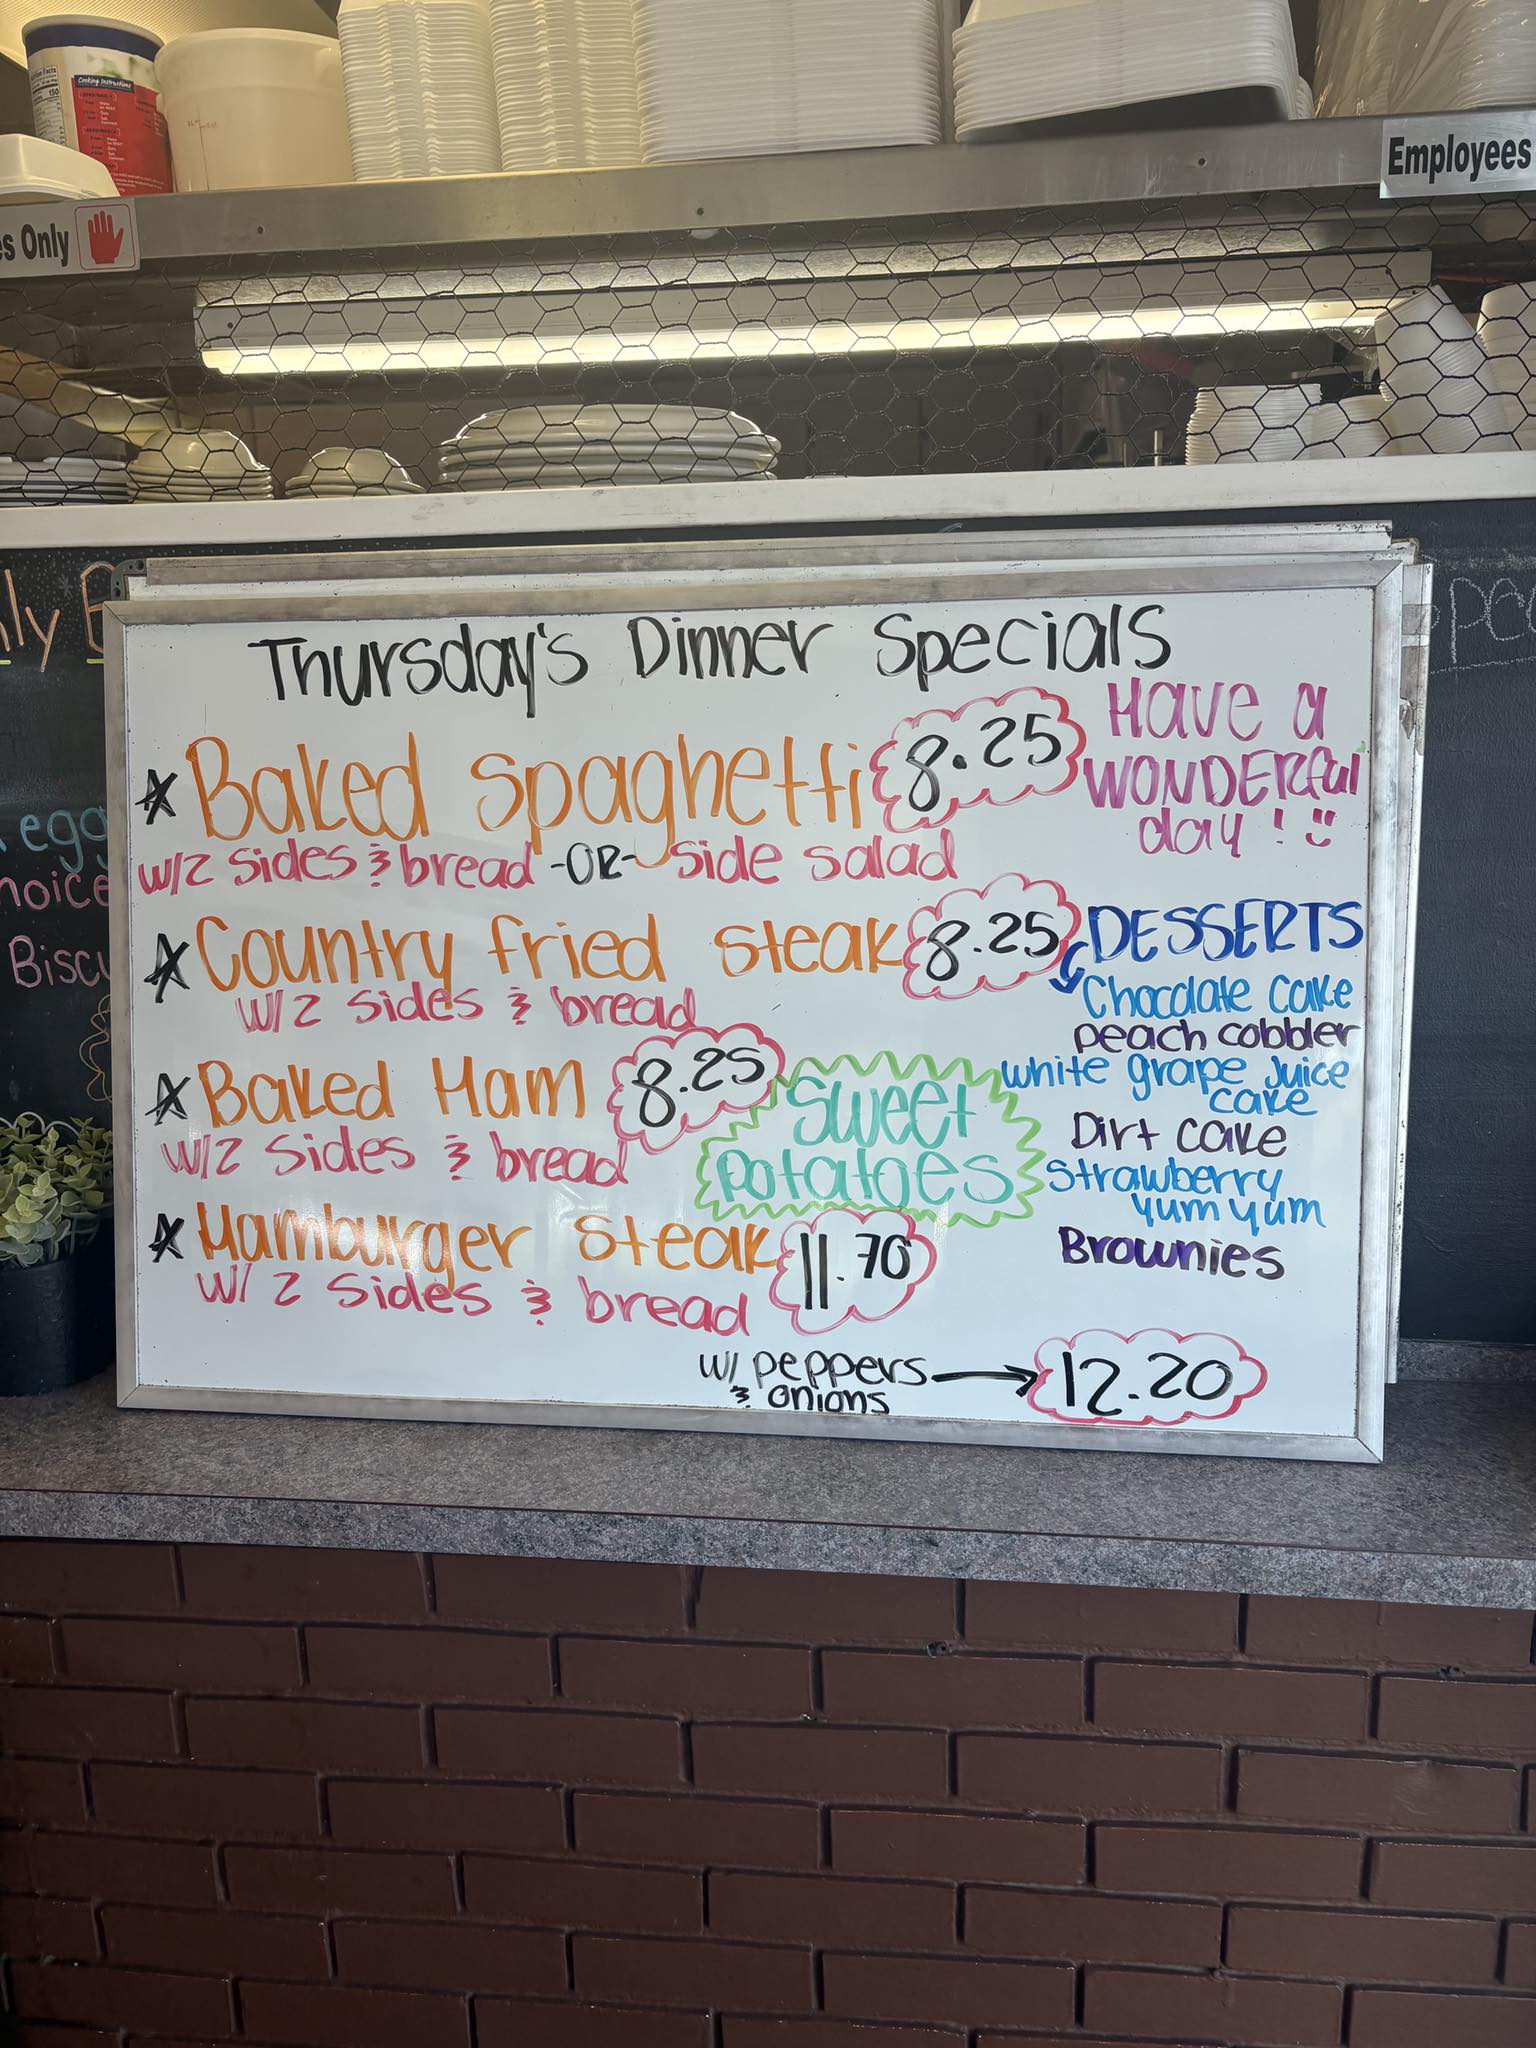 Cooking Instructions
150
Employees
es Only
Thursday's Dinner Specials
Have a
WONDERful
day!
* Baked Spaghetti 8.25
w/2 sides & bread -OR- side salad
* Country fried steak 8.25
w/2 sides & bread
* Baked Ham 8.25
w/2 sides & bread
Sweet
potatoes
* Hamburger steak 11.70
w/ 2 sides & bread
w/ peppers
& onions
12.20
DESSERTS
Chocolate Cake
peach cobbler
white grape juice
cake
Dirt cake
strawberry
yum yum
Brownies
egg
hoice
Biscu